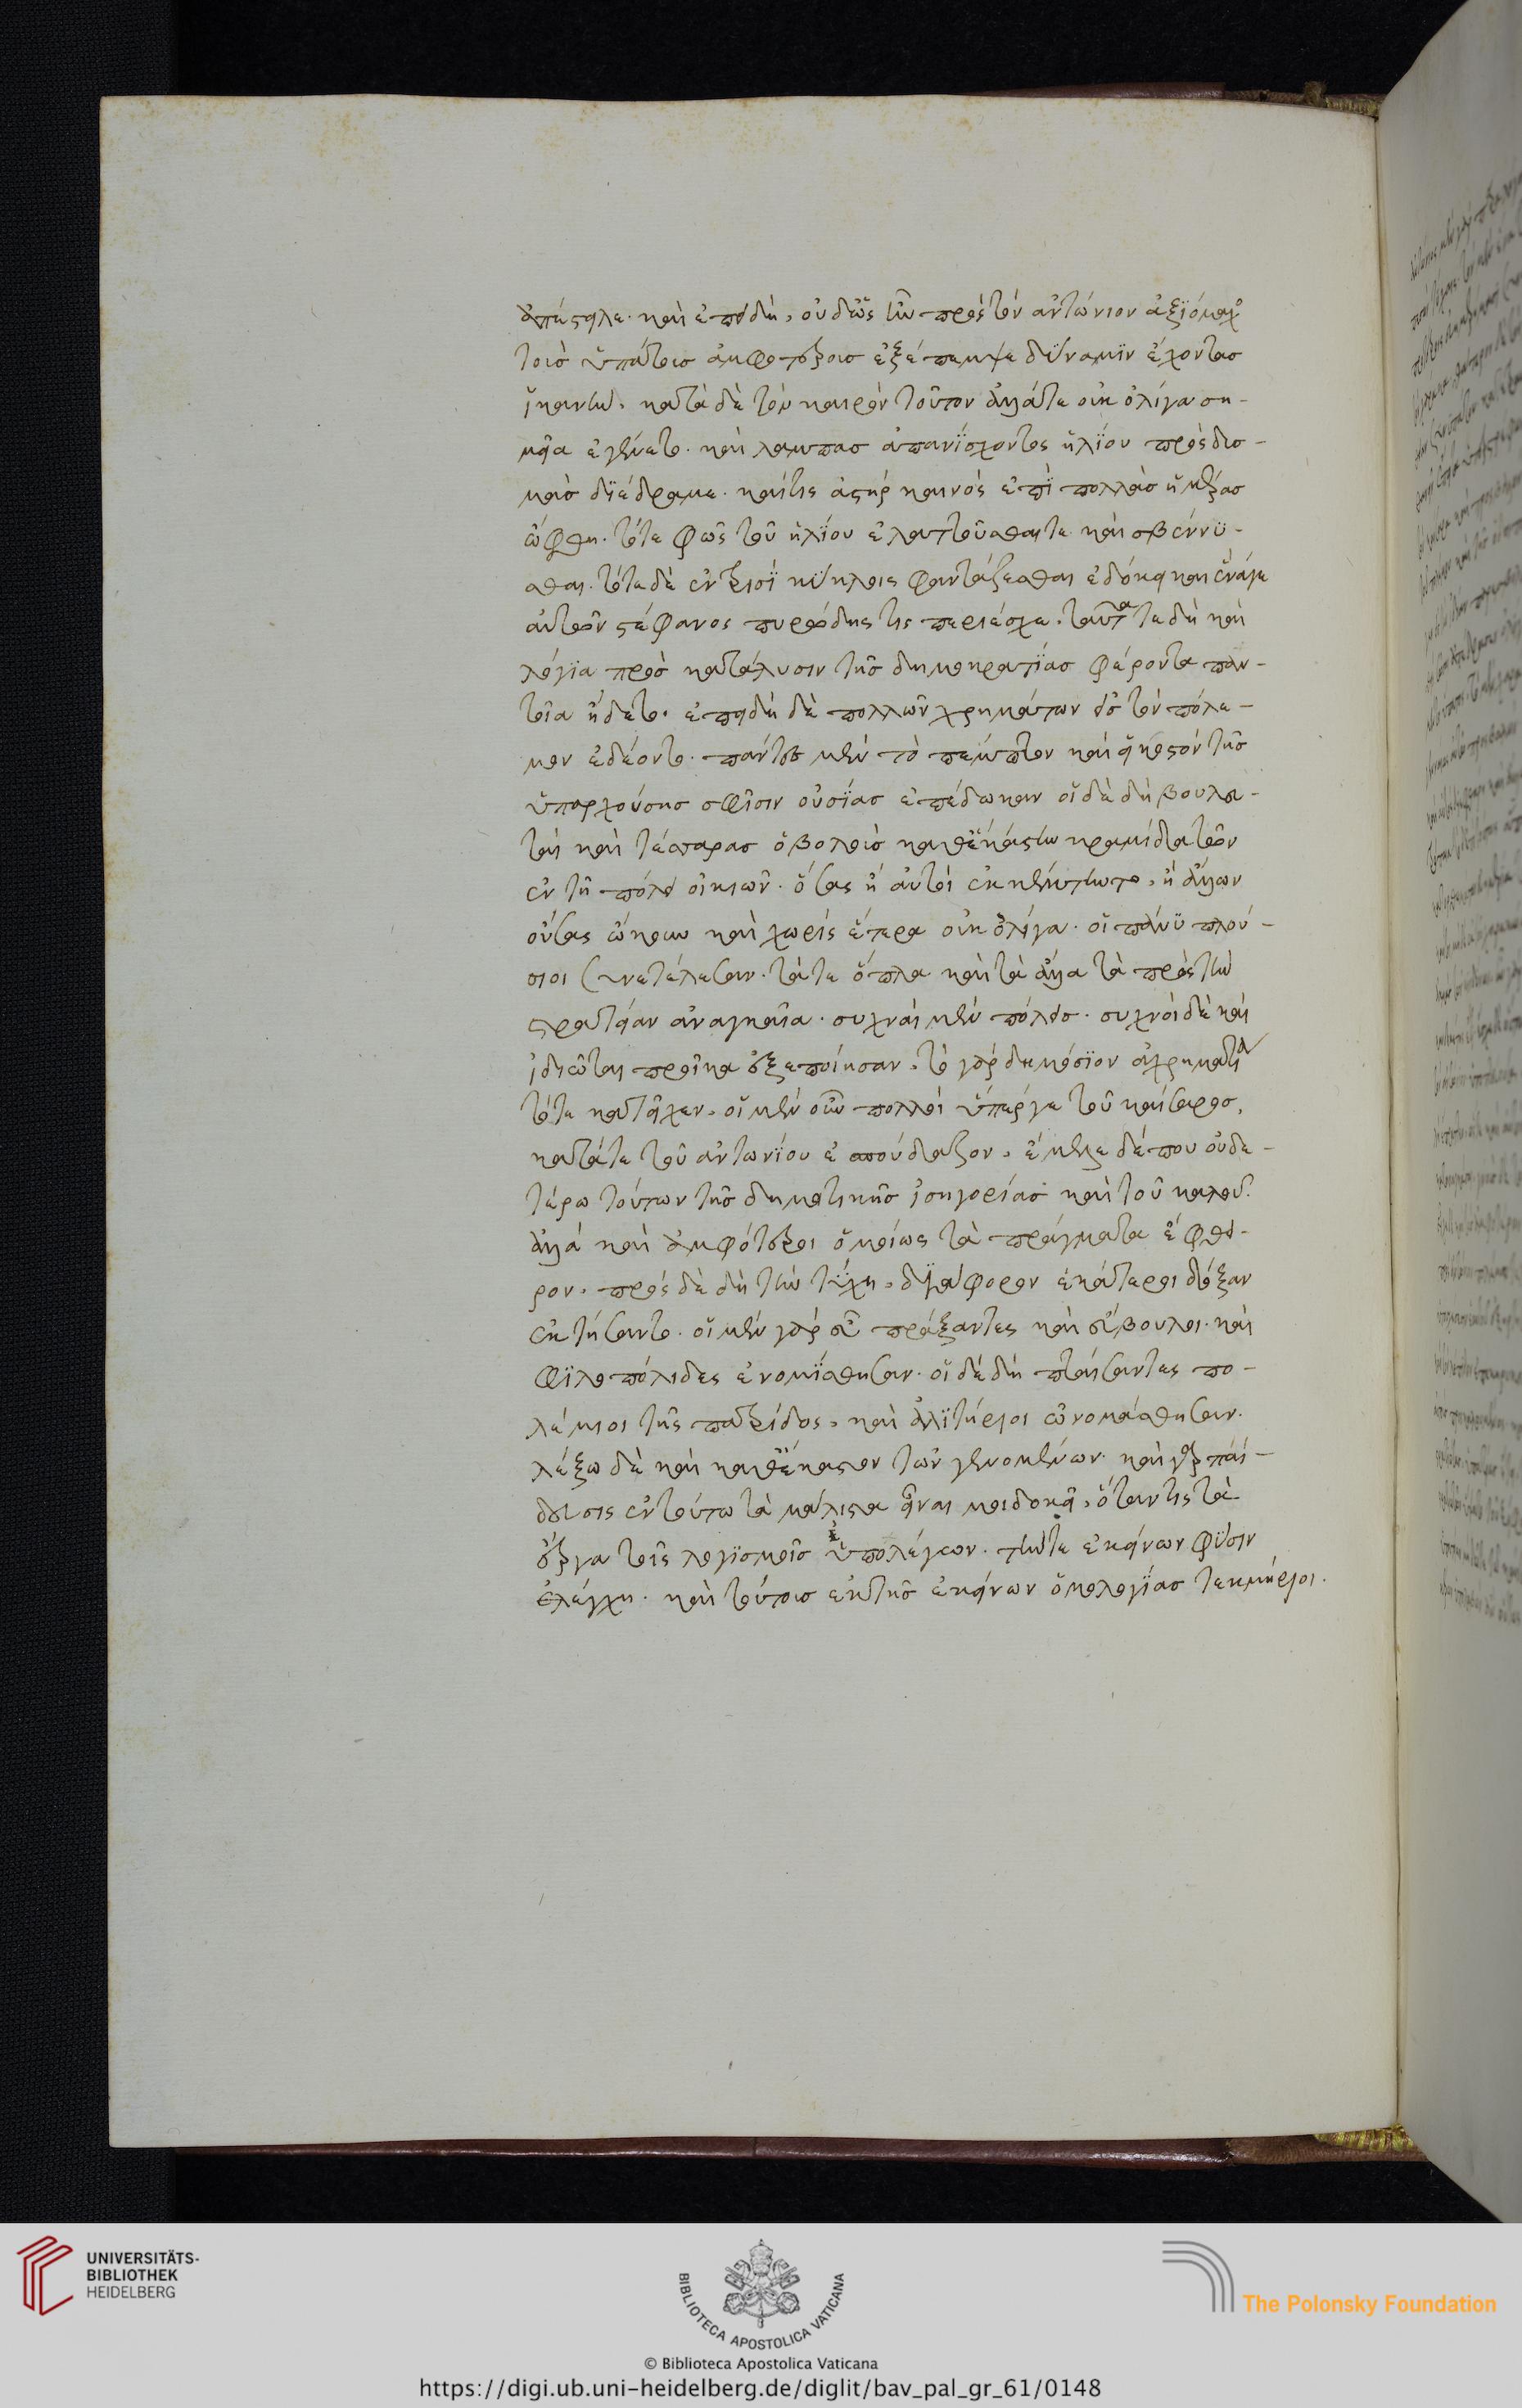 ἀπέστειλε· καὶ ἐπειδὴ, οὐδεὶς ἦν πρὸς τὸν ἀντώνιον ἀξιόμαχος
τοὺς ὑπάτους ἀμφοτέρους ἐξέπεμψε δύναμιν ἔχοντας
ἱκανὴν. κατὰ δὲ τὸν καιρὸν τοῦτον ἄλλάτε οὐκ ὀλίγα ση-
μεῖα ἐγένετο. καὶ λαμπας ἀπανίσχοντος ἡλίου πρὸς δυσ-
μὰς διέδραμε. καίτις ἀστὴρ καινὸς ἐπὶ πολλὰς ἡμέρας
ὤφθη. τότε φῶς τοῦ ἡλίου ἐλαττοῦσθαιτε καὶ σβέννυ-
σθαι. τότε δὲ ἐν τρισὶ κύκλοις φαντάζεσθαι ἐδόκει καὶ ἕνάγε
αὐτῶν στέφανος πυρώδης τις περιέσχε. ταῦτα τε δὴ καὶ
λόγια πρὸς κατάλυσιν τῆς δημοκρατίας φέροντα παν-
τοῖα ᾔδετο. ἐπειδὴ δὲ πολλῶν χρημάτων ἐς τὸν πόλε-
μον ἐδέοντο. πάντες μὲν τὸ πέμπτον καὶ εἰκοστὸν τῆς
ὑπαρχούσης σφίσιν οὐσίας ἐπέδωκαν οἱ δὲ δὴ βουλευ-
ταὶ καὶ τέσσαρας ὀβολοὺς καθ' ἑκάστην κεραμίδα τῶν
ἐν τῇ πόλει οἰκιῶν. ὅσας ἢ αὐτοὶ ἐκέκτηντο, ἢ ἄλλων
οὔσας ᾤκουν καὶ χωρὶς ἕτερα οὐκ ὀλίγα. οἱ πάνυ πλού-
σιοι συνετέλεσαν. τάτε ὅπλα καὶ τὰ ἄλλα τὰ πρὸς τὴν
στρατείαν ἀναγκαῖα. συχναὶ μὲν πόλεις. συχνοὶ δὲ καὶ
ἰδιῶται προῖκα ἐξεποίησαν. τὸ γὰρ δημόσιον ἀχρηματία
τότε κατεῖχεν. οἱ μὲν οὖν πολλοὶ ὑπέργε τοῦ καίσαρος,
κατάτε τοῦ ἀντωνίου ἐσπούδαζον. ἔμελε δέ που οὐδε-
τέρω τούτων τῆς δημοτικῆς ἰσηγορίας καὶ τοῦ καλοῦ.
ἀλλὰ καὶ ἀμφότεροι ὁμοίως τὰ πράγματα ἔφθει-
ρον. πρὸς δὲ δὴ τὴν τύχην διάφορον ἑκάτεροι δόξαν
ἐκτήσαντο. οἱ μὲν γὰρ εὖ πράξαντες καὶ εὔβουλοι. καὶ
φιλοπόλιδες ἐνομίσθησαν. οἱ δὲ δὴ πταίσαντες πο-
λέμιοι τῆς πατρίδος, καὶ ἀλιτήριοι ὠνομάσθησαν.
λέξω δὲ καὶ καθ' ἕκαστον τῶν γενομένων. καὶ γὰρ παί-
δευσις ἐν τούτω τὰ μάλιστα εἶναι μοι δοκεῖ, ὅταν τις τὰ
ἔργα τοῖς λογισμοῖς ὑπολέγων. τήντε ἐκείνων φύσιν
ἐλέγχη. καὶ τούτοις ἐκ τῆς ἐκείνων ὁμολογίας τεκμήριοι.
UNIVERSITÄTS-
BIBLIOTHEK
HEIDELBERG
BIBLIOTECA APOSTOLICA VATICANA
The Polonsky Foundation
© Biblioteca Apostolica Vaticana
https://digi.ub.uni-heidelberg.de/diglit/bav_pal_gr_61/0148